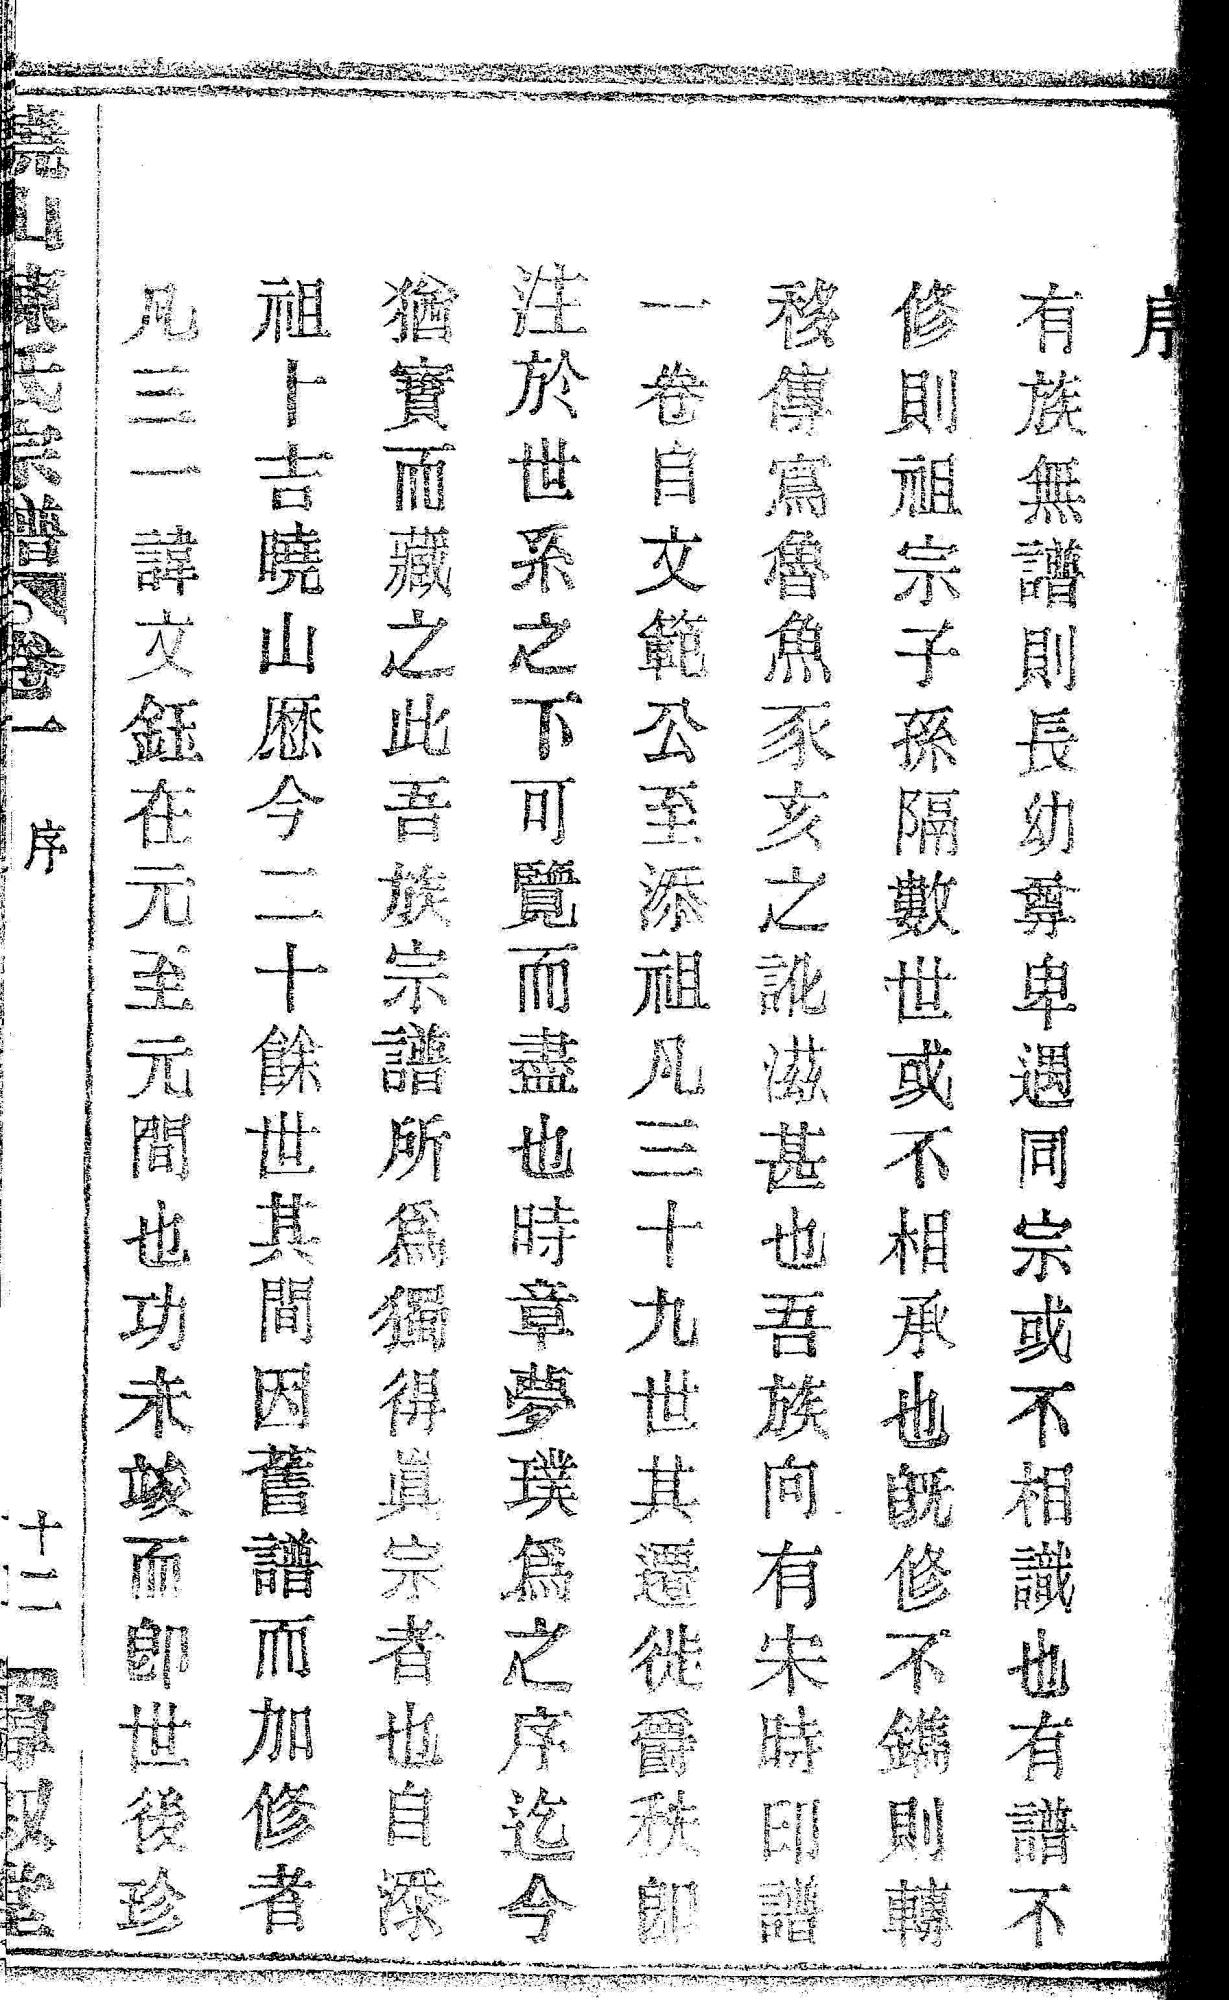 序
有族無譜則長幼尊卑遇同宗或不相識也有譜不
修則祖宗子孫隔數世或不相承也旣修不鐫則轉
移傳寫魯魚豕亥之訛滋甚也吾族向有宋時印譜
一卷自文範公至添祖凡三十九世其遷徙爵秩卽
注於世系之下可覽而盡也時章夢璞爲之序迄今
猶寶而藏之此吾族宗譜所爲獨得眞宗者也自添
祖卜吉曉山歷今二十餘世其間因舊譜而加修者
凡三一諱文鈺在元至元間也功未竣而卽世後珍
山陳氏宗譜 卷一 序 十二